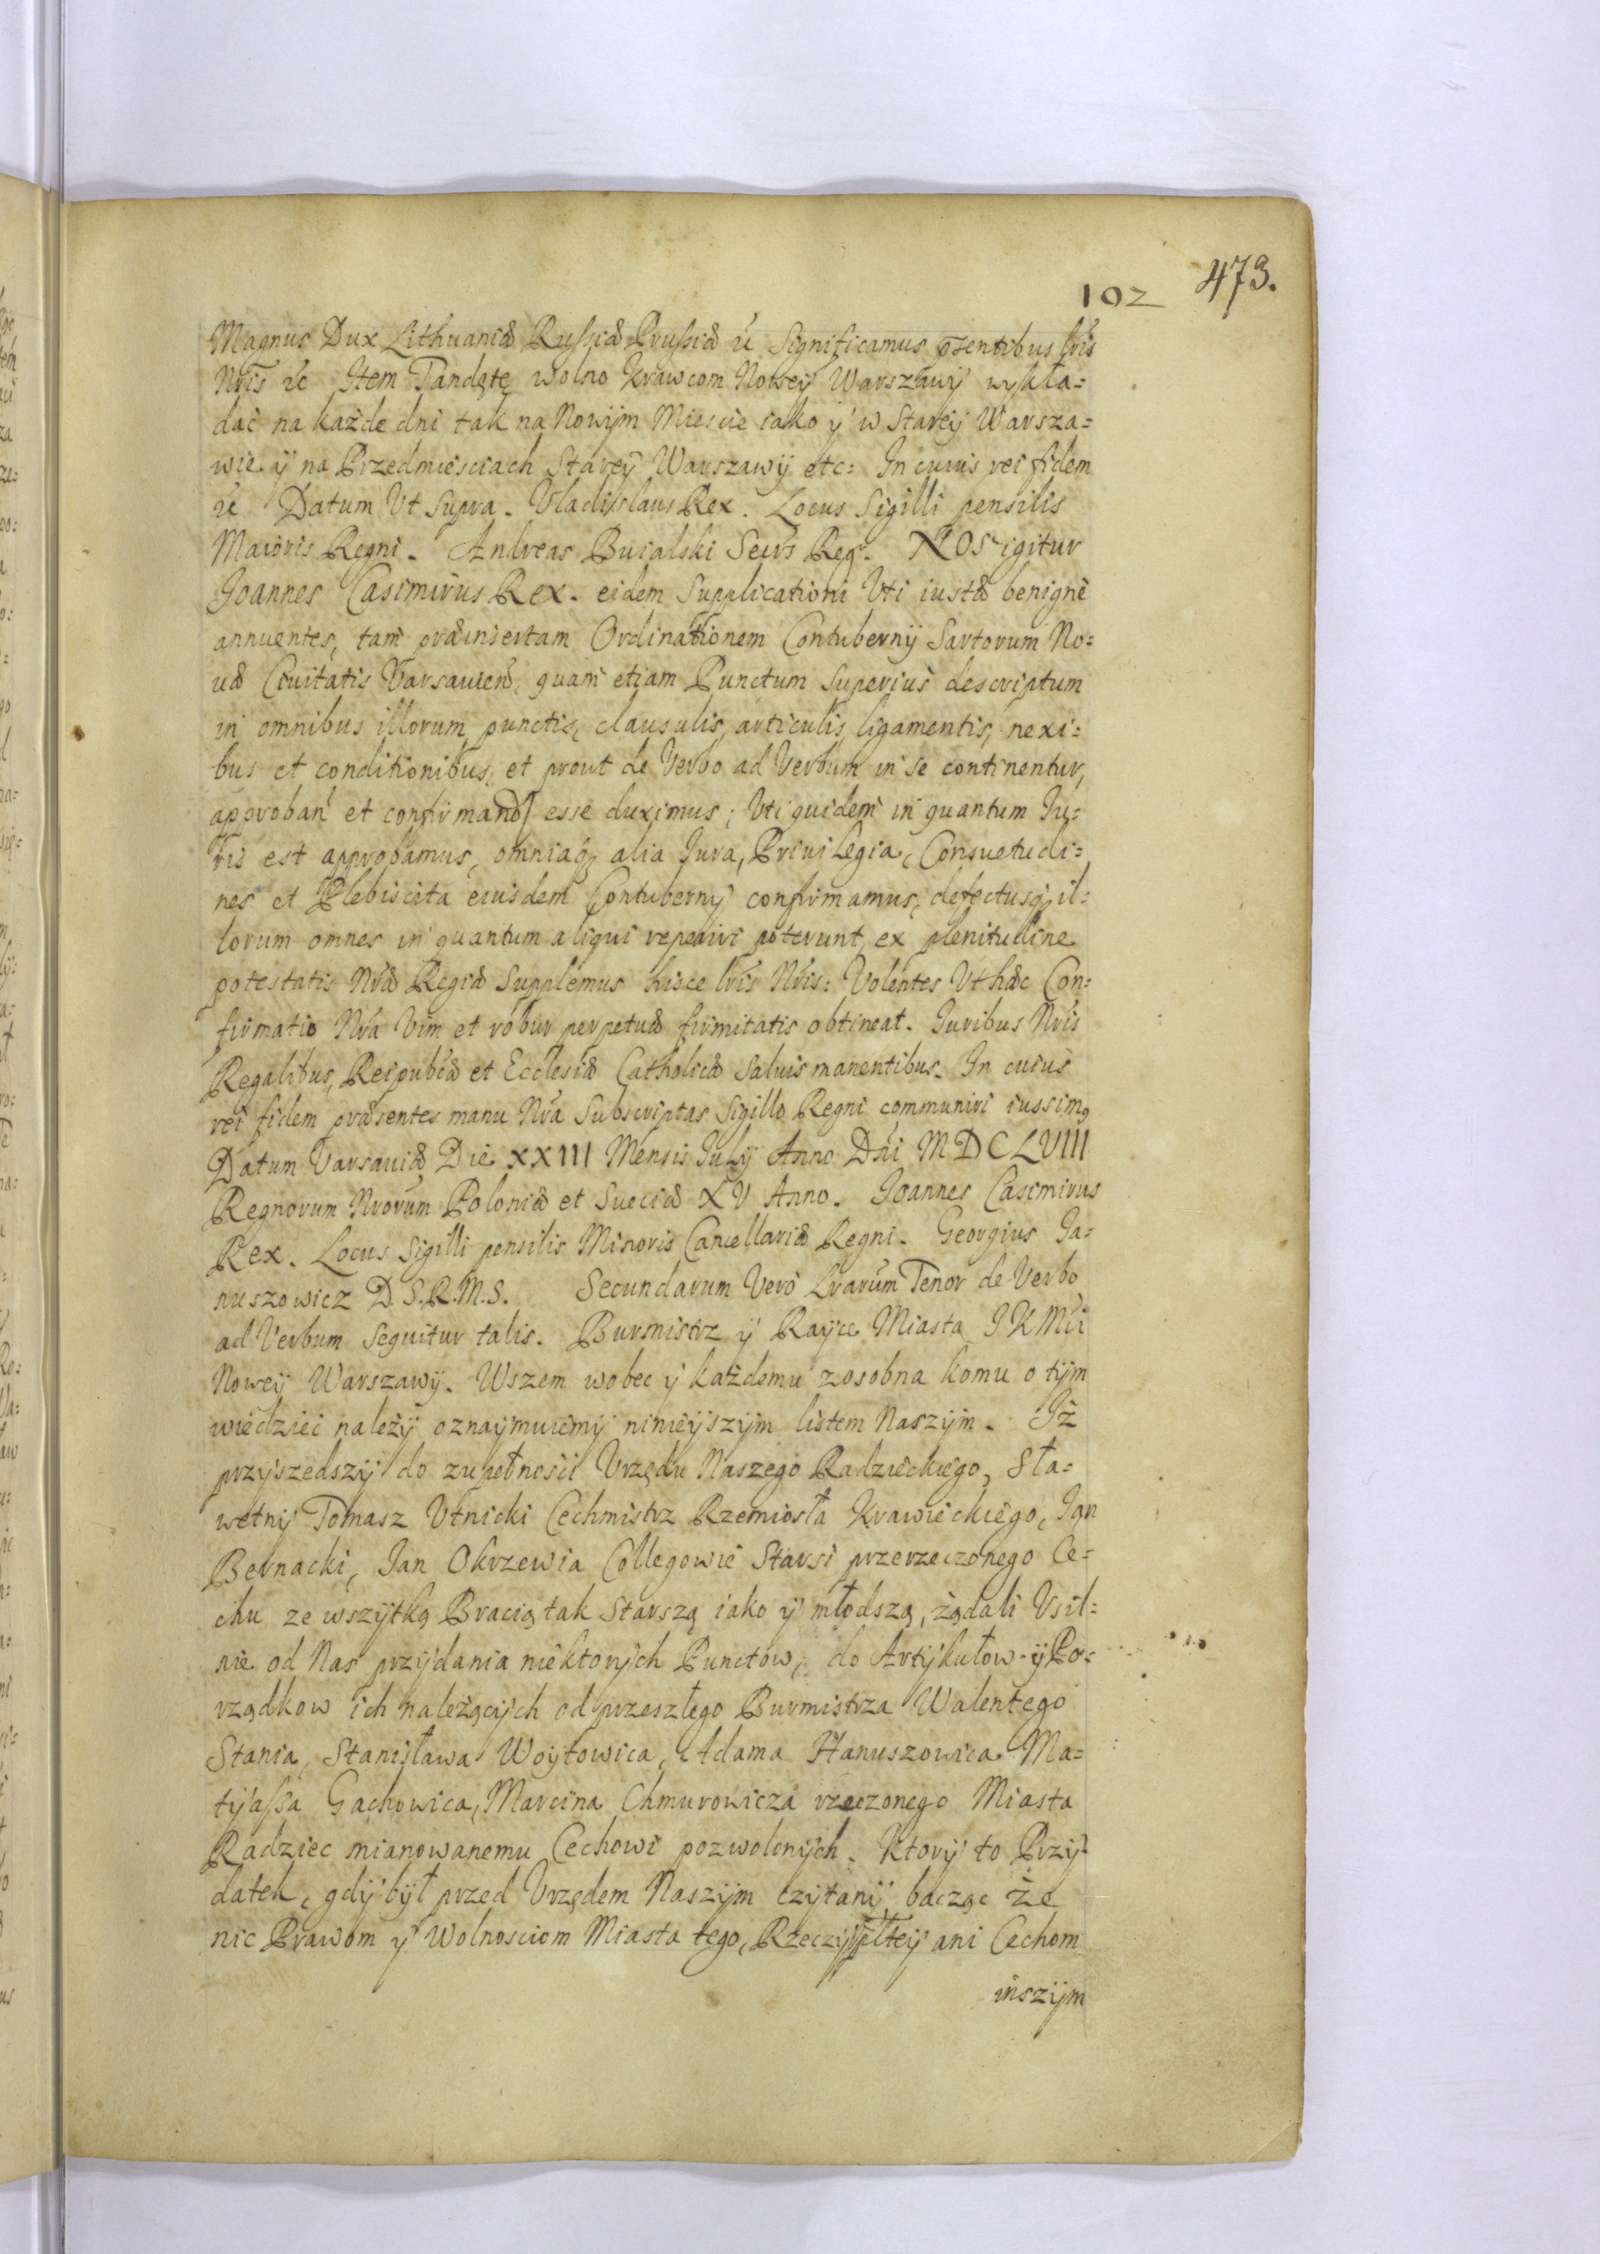 102 473.
Magnus Dux Lithuaniæ Russiæ Prussiæ &c Significamus p̄sentibus lr̃is
Nr̃is &c Item Tandętę wolno Krawcom Nowey Warszawÿ wykła=
dać na każde dni tak na Nowÿm Miescie iako ÿ w Starey Warsza=
wie ÿ na Przedmiesciach Starey Warszawÿ etc: In cuius rei fidem
&c Datum Vt Supra. Vladislaus Rex. Locus Sigilli pensilis
Maioris Regni. Andreas Buialski Secr̃s Reg. NOS igitur
Joannes Casimirus Rex. eidem Supplicationi Vti iustæ benignè
annuentes, tam præinsertam Ordinationem Contubernÿ Sartorum No=
uæ Ciuitatis Varsauien̄, quam etiam Punctum Superius descriptum
in omnibus illorum punctis, clausulis, articulis, ligamentis, nexi=
bus et conditionibus, et prout de Verbo ad Verbum in se continentur,
approban̄ et confirmand esse duximus; Vti quidem in quantum Iu=
ris est approbamus, omniaq; alia Iura, Priuilegia, Consuetudi=
nes et Plebiscita eiusdem Contubernÿ confirmamus, defectusq; il=
lorum omnes in quantum aliqui reperiri poterunt, ex plenitudine
potestatis Nr̃æ Regiæ Supplemus hisce lr̃is Nr̃is: Volentes Vt hæc Con=
firmatio Nr̃a Vim et robur perpetuæ firmitatis obtineat. Iuribus Nr̃is
Regalibus, Reipub̃cæ et Ecclesiæ Catholicæ Saluis manentibus. In cuius
rei fidem præsentes manu Nr̃a Subscriptas Sigillo Regni communiri iussim9
Datum Varsauiæ Die XXIII Mensis Julÿ Anno Dn̄i MDCLVIII
Regnorum Nrorum Poloniæ et Sueciæ XV Anno. Joannes Casimirus
Rex. Locus Sigilli pensilis Minoris Cancellariæ Regni. Georgius Ja=
nuszowicz D.S.R.M.S. Secundarum Vero Lrarum Tenor de Verbo
ad Verbum Sequitur talis. Burmistrz ÿ Rayce Miasta JKMći
Nowey Warszawÿ. Wszem wobec ÿ każdemu zosobna komu o tÿm
wiedziec należÿ oznaÿmuiemÿ ninieÿszÿm listem Naszÿm. Iż
przÿszedszÿ do zupełnosci Vrzędu Naszego Radzieckiego, Sła=
wetnÿ Tomasz Vtnicki Cechmistrz Rzemiosła Krawieckiego, Jan
Bernacki, Jan Okrzewia Collegowie Starsi przerzeczonego Ce=
chu ze wszÿtką Bracią tak Starszą iako ÿ młodszą, żądali Vsil=
nie od Nas przÿdania niektorÿch Punctow, do Artÿkułow ÿ Po=
rządkow ich należącÿch od przeszłego Burmistrza Walentego
Stania, Stanisława Woÿtowica, Adama Hanuszowica Ma=
tÿassa Gachowica, Marcina Chmurowicza rzeczonego Miasta
Radziec mianowanemu Cechowi pozwolonÿch. Ktorÿ to Przÿ
datek, gdÿ bÿł przed Vrzędem Naszÿm czÿtanÿ, bacząc że
nic Prawom ÿ Wolnosciom Miasta tego, Rzeczÿpltey ani Cechom
inszÿm